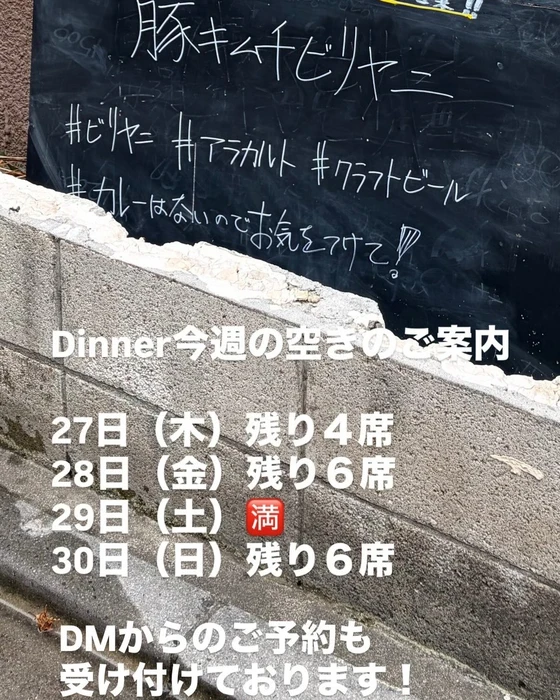 豚キムチビリヤニ
#ビリヤニ #アラカルト #クラフトビール
#カレーはないのでお気をつけて!
Dinner今週の空きのご案内
27日(木)残り4席
28日(金)残り6席
29日(土)🈵
30日(日)残り6席
DMからのご予約も
受け付けております!